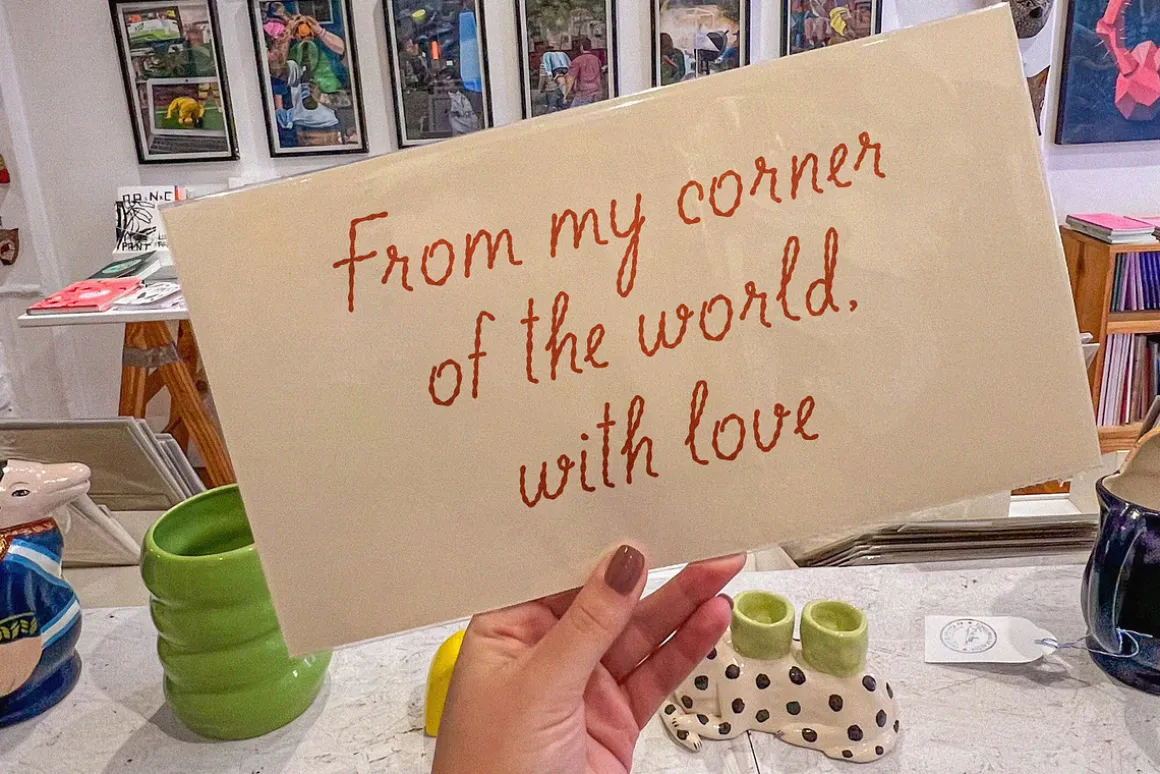 From my corner
of the world,
with love